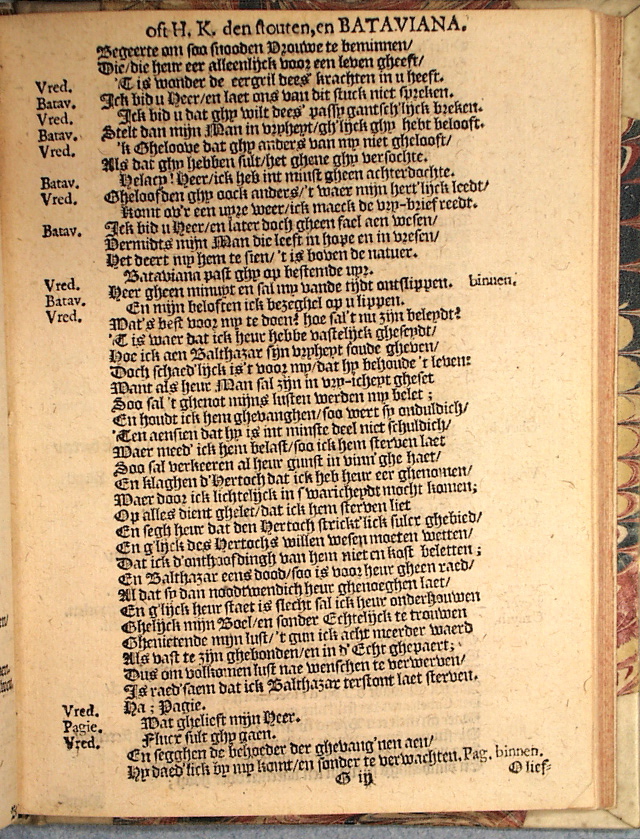 oft H. K. den stouten, en BATAVIANA.
Begeerte om soo snooden Vrouwe te beminnen/
Die/die heur eer alleenlijck voor een leven gheeft/
Vred. 'T is wonder de eergril dees' krachten in u heeft.
Batav. Ick bid u Heer/en laet ons van dit stuck niet spreken.
Vred. Ick bid u dat ghy wilt dees' passy gantsch'lijck breken.
Batav. Stelt dan mijn Man in vryheyt/gh'lijck ghy hebt belooft.
Vred. 'k Gheloove dat ghy anders van my niet ghelooft/
Als dat ghy hebben sult/het ghene ghy versochte.
Batav. Helacy! Heer/ick heb int minst gheen achterdochte.
Vred. Gheloofden ghy oock anders/'t waer mijn hert'lijck leedt/
Komt ov'r een uyre weer/ick maeck de vry-brief reedt.
Batav. Ick bid u Heer/en later doch gheen fael aen wesen/
Vermidts mijn Man die leeft in hope en in vresen/
Het deert my hem te sien/'t is boven de natuer.
Vred. Bataviana past ghy op bestemde uyr.
Batav. Heer gheen minuyt en sal my vande tijdt ontslippen. binnen.
Vred. En mijn beloften ick bezeghel op u lippen.
Wat's best voor my te doen? hoe sal't nu zijn beleydt?
'T is waer dat ick heur hebbe vastelijck gheseydt/
Hoe ick aen Balthazar sijn vryheyt soude gheven/
Doch schaed'lijck is't voor my/dat hy behoude 't leven:
Want als heur Man sal zijn in vry-icheyt gheset
Soo sal 't ghenot mijns lusten werden my belet;
En houdt ick hem ghevanghen/soo wert sy onduldich/
'Ten aensien dat hy is int minste deel niet schuldich/
Waer meed' ick hem belast/soo ick hem sterven laet
Soo sal verkeeren al heur gunst in vinn'ghe haet/
En klaghen d'Hertoch dat ick heb heur eer ghenomen/
Waer door ick lichtelijck in s'waricheydt mocht komen;
Op alles dient ghelet/dat ick hem sterven liet
En segh heur dat den Hertoch strickt'lick sulcx ghebied/
En g'lijck des Hertochs willen wesen moeten wetten/
Dat ick d'onthoofdingh van hem niet en kost beletten;
En Balthazar eens dood/soo is voor heur gheen raed/
Al dat sy dan noodtwendich heur ghenoeghen laet/
En g'lijck heur staet is slecht sal ick heur onderhouwen
Ghelijck mijn Boel/en sonder Echtelijck te trouwen
Ghenietende mijn lust/'t gun ick acht meerder waerd
Als vast te zijn ghebonden/en in d'Echt ghepaert;
Dus om volkomen lust nae wenschen te verwerven/
Is raed'saem dat ick Balthazar terstont laet sterven.
Vred. Ha; Pagie.
Pagie. Wat ghelieft mijn Heer.
Vred. Flucx sult ghy gaen.
En segghen de behoeder der ghevang'nen aen/
Hy daed'lick by my komt/en sonder te verwachten. Pag. binnen.
G iij
O lief-